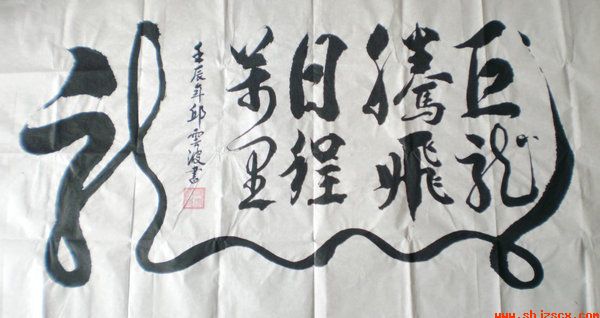 巨龍
騰飛
日程
萬里
壬辰年邱雲波書
龍
www.shjzscx.com